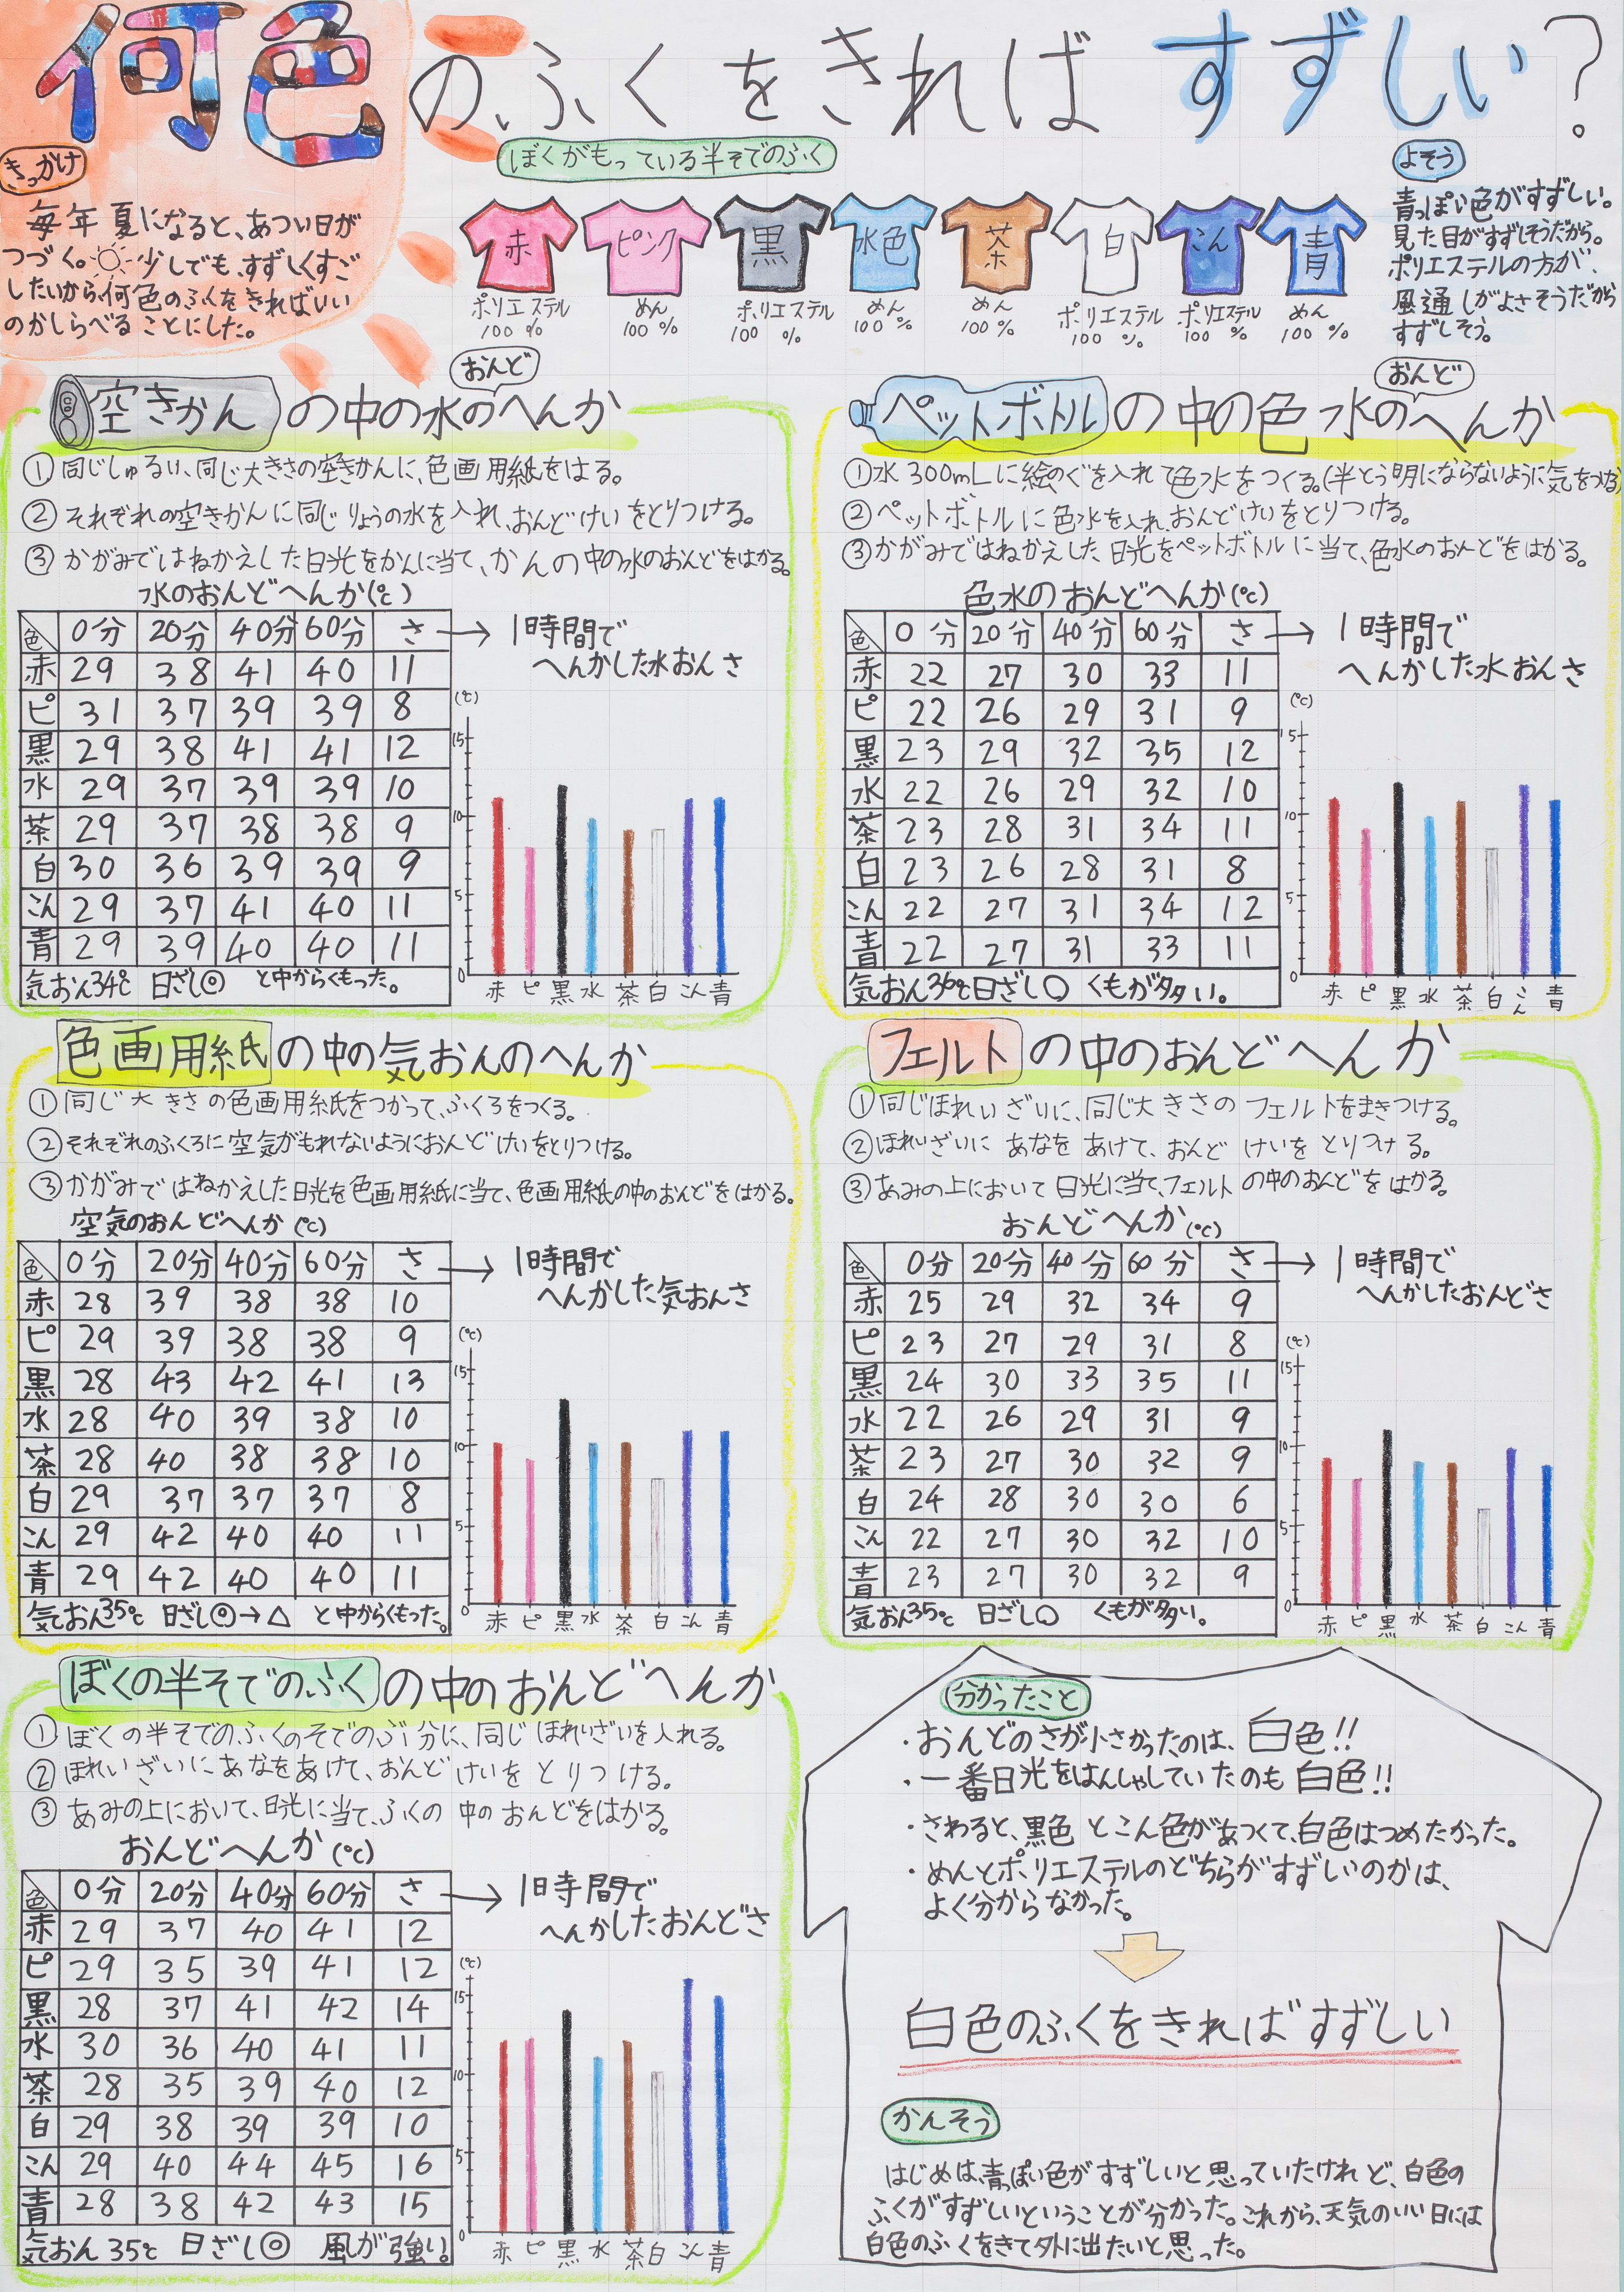 何色のふくをきればすずしい?
きっかけ
毎年夏になると、あつい日が
つづく。少しでも、すずしくすご
したいから、何色のふくをきればいい
のかしらべることにした。
ぼくがもっている半そでのふく
赤
ピンク
黒
水色
茶
白
こん
青
ポリエステル 100%
めん 100%
ポリエステル 100%
めん 100%
めん 100%
ポリエステル 100%
ポリエステル 100%
めん 100%
よそう
青っぽい色がすずしい。
見た目がすずしそうだから。
ポリエステルの方が、
風通しがよさそうだから
すずしそう。
空きかんの中の水のおんどへんか
①同じしゅるい、同じ大きさの空きかんに、色画用紙をはる。
②それぞれの空きかんに同じりょうの水を入れ、おんどけいをとりつける。
③かがみではねかえした日光をかんに当て、かんの中の水のおんどをはかる。
水のおんどへんか(℃)
色 0分 20分 40分 60分 さ
赤 29 38 41 40 11
ピ 31 37 39 39 8
黒 29 38 41 41 12
水 29 37 39 39 10
茶 29 37 38 38 9
白 30 36 39 39 9
こん 29 37 41 40 11
青 29 39 40 40 11
気おん34℃ 日ざし◎ と中からくもった。
→1時間で
へんかした水おんさ
(℃)
15
10
5
0
赤 ピ 黒 水 茶 白 こん 青
ペットボトルの中の色水のおんどへんか
①水300mLに絵のぐを入れて色水をつくる。(半とう明にならないように気をつける)
②ペットボトルに色水を入れ、おんどけいをとりつける。
③かがみではねかえした日光をペットボトルに当て、色水のおんどをはかる。
色水のおんどへんか(℃)
色 0分 20分 40分 60分 さ
赤 22 27 30 33 11
ピ 22 26 29 31 9
黒 23 29 32 35 12
水 22 26 29 32 10
茶 23 28 31 34 11
白 23 26 28 31 8
こん 22 27 31 34 12
青 22 27 31 33 11
気おん36℃ 日ざし○ くもが多い。
→1時間で
へんかした水おんさ
(℃)
15
10
5
0
赤 ピ 黒 水 茶 白 こん 青
色画用紙の中の気おんのへんか
①同じ大きさの色画用紙をつかって、ふくろをつくる。
②それぞれのふくろに空気がもれないようにおんどけいをとりつける。
③かがみではねかえした日光を色画用紙に当て、色画用紙の中のおんどをはかる。
空気のおんどへんか(℃)
色 0分 20分 40分 60分 さ
赤 28 39 38 38 10
ピ 29 39 38 38 9
黒 28 43 42 41 13
水 28 40 39 38 10
茶 28 40 38 38 10
白 29 37 37 37 8
こん 29 42 40 40 11
青 29 42 40 40 11
気おん35℃ 日ざし◎→△ と中からくもった。
→1時間で
へんかした気おんさ
(℃)
15
10
5
0
赤 ピ 黒 水 茶 白 こん 青
フェルトの中のおんどへんか
①同じほれいざいに、同じ大きさのフェルトをまきつける。
②ほれいざいにあなをあけて、おんどけいをとりつける。
③あみの上において日光に当て、フェルトの中のおんどをはかる。
おんどへんか(℃)
色 0分 20分 40分 60分 さ
赤 25 29 32 34 9
ピ 23 27 29 31 8
黒 24 30 33 35 11
水 22 26 29 31 9
茶 23 27 30 32 9
白 24 28 30 30 6
こん 22 27 30 32 10
青 23 27 30 32 9
気おん35℃ 日ざし○ くもが多い。
→1時間で
へんかしたおんどさ
(℃)
15
10
5
0
赤 ピ 黒 水 茶 白 こん 青
ぼくの半そでのふくの中のおんどへんか
①ぼくの半そでのふくのそでのぶ分に、同じほれいざいを入れる。
②ほれいざいにあなをあけて、おんどけいをとりつける。
③あみの上において、日光に当て、ふくの中のおんどをはかる。
おんどへんか(℃)
色 0分 20分 40分 60分 さ
赤 29 37 40 41 12
ピ 29 35 39 41 12
黒 28 37 41 42 14
水 30 36 40 41 11
茶 28 35 39 40 12
白 29 38 39 39 10
こん 29 40 44 45 16
青 28 38 42 43 15
気おん35℃ 日ざし◎ 風が強い。
→1時間で
へんかしたおんどさ
(℃)
15
10
5
0
赤 ピ 黒 水 茶 白 こん 青
分かったこと
・おんどのさが小さかったのは、白色!!
・一番日光をはんしゃしていたのも白色!!
・さわると、黒色とこん色があつくて、白色はつめたかった。
・めんとポリエステルのどちらがすずしいのかは、
よく分からなかった。
白色のふくをきればすずしい
かんそう
はじめは、青っぽい色がすずしいと思っていたけれど、白色の
ふくがすずしいということが分かった。これから、天気のいい日には
白色のふくをきて外に出たいと思った。